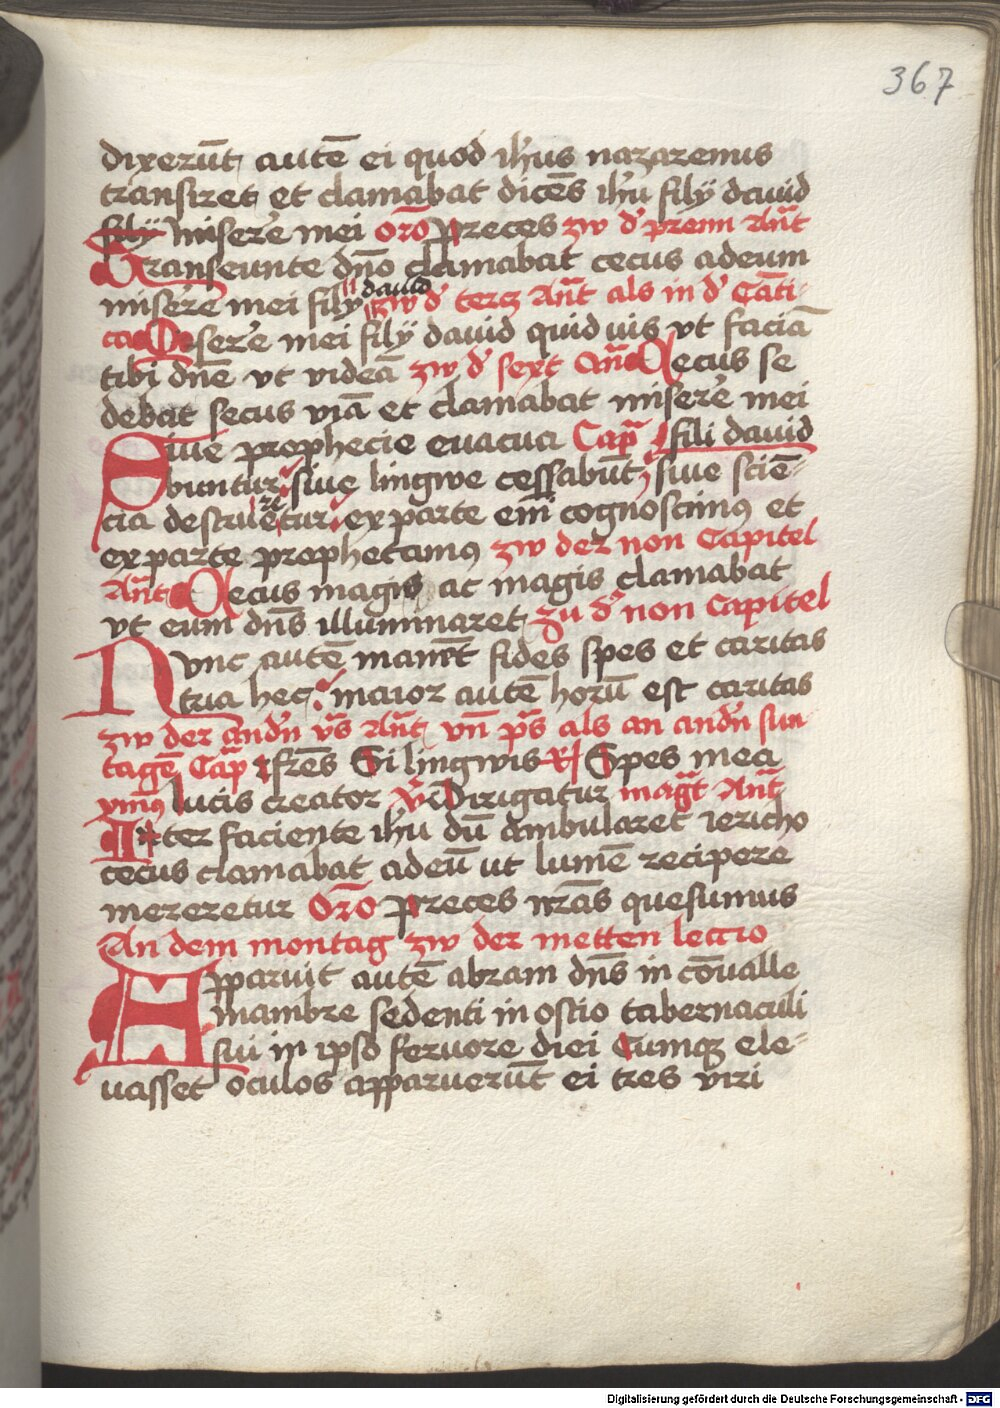 367
dixerūt autē ei quod ih̄us nazarenus
transiret et clamabat dicēs ih̄u filÿ dauid
filÿ miserē mei orō preces zw d' prenn Ant̄
Transeunte dn̄o clamabat cecus adeum
miserē mei filÿ dauid zw d' tercz Ant̄ als in d' Cāti-
ca Miserē mei filÿ dauid quid uis vt faciā
tibi dn̄e vt videā zw d' sext An̄ Cecus se
debat secus viā et clamabat miserē mei
Siue prophecie euacua Cap̄ fili dauid
buntur siue lingwe cessabūt siue sciē-
cia destruetur ex parte em̄ cognoscimus et
ex parte prophetamus zw der non Capitel
Ant̄ Cecus magis ac magis clamabat
vt eum dn̄s illuminaret zu d' non Capitel
Nvnc autē manēt fides spes et caritas
tria hec maior autē horū est caritas
zw der andn̄ vs̄ Ant̄ vn̄ ps̄ als an andn̄ sun
tagē Cap̄ frēs Si lingwis Spes mea
ymnus lucis creator Dirigatur maḡt Ant̄
Iter faciente ih̄u dū ambularet iericho
cecus clamabat adeū ut lumē recipere
mereretur Orō preces nrās quesumus
An dem montag zw der metten leccio
Apparuit autē abram dn̄s in cōualle
mambre sedenti in ostio tabernaculi
sui in ipso feruore diei Cumqz ele-
uasset oculos apparuerūt ei tres viri
Digitalisierung gefördert durch die Deutsche Forschungsgemeinschaft - DFG